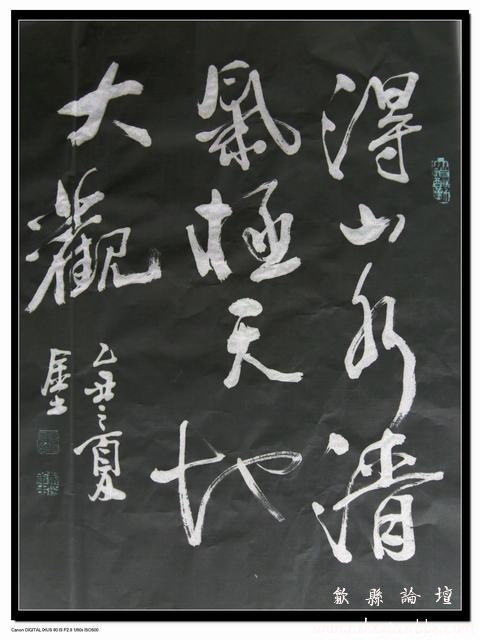 得山水清
氣極天地
大觀
乙丑之夏
歙縣論壇
Canon DIGITAL IXUS 80 IS F2.8 1/60s ISO500